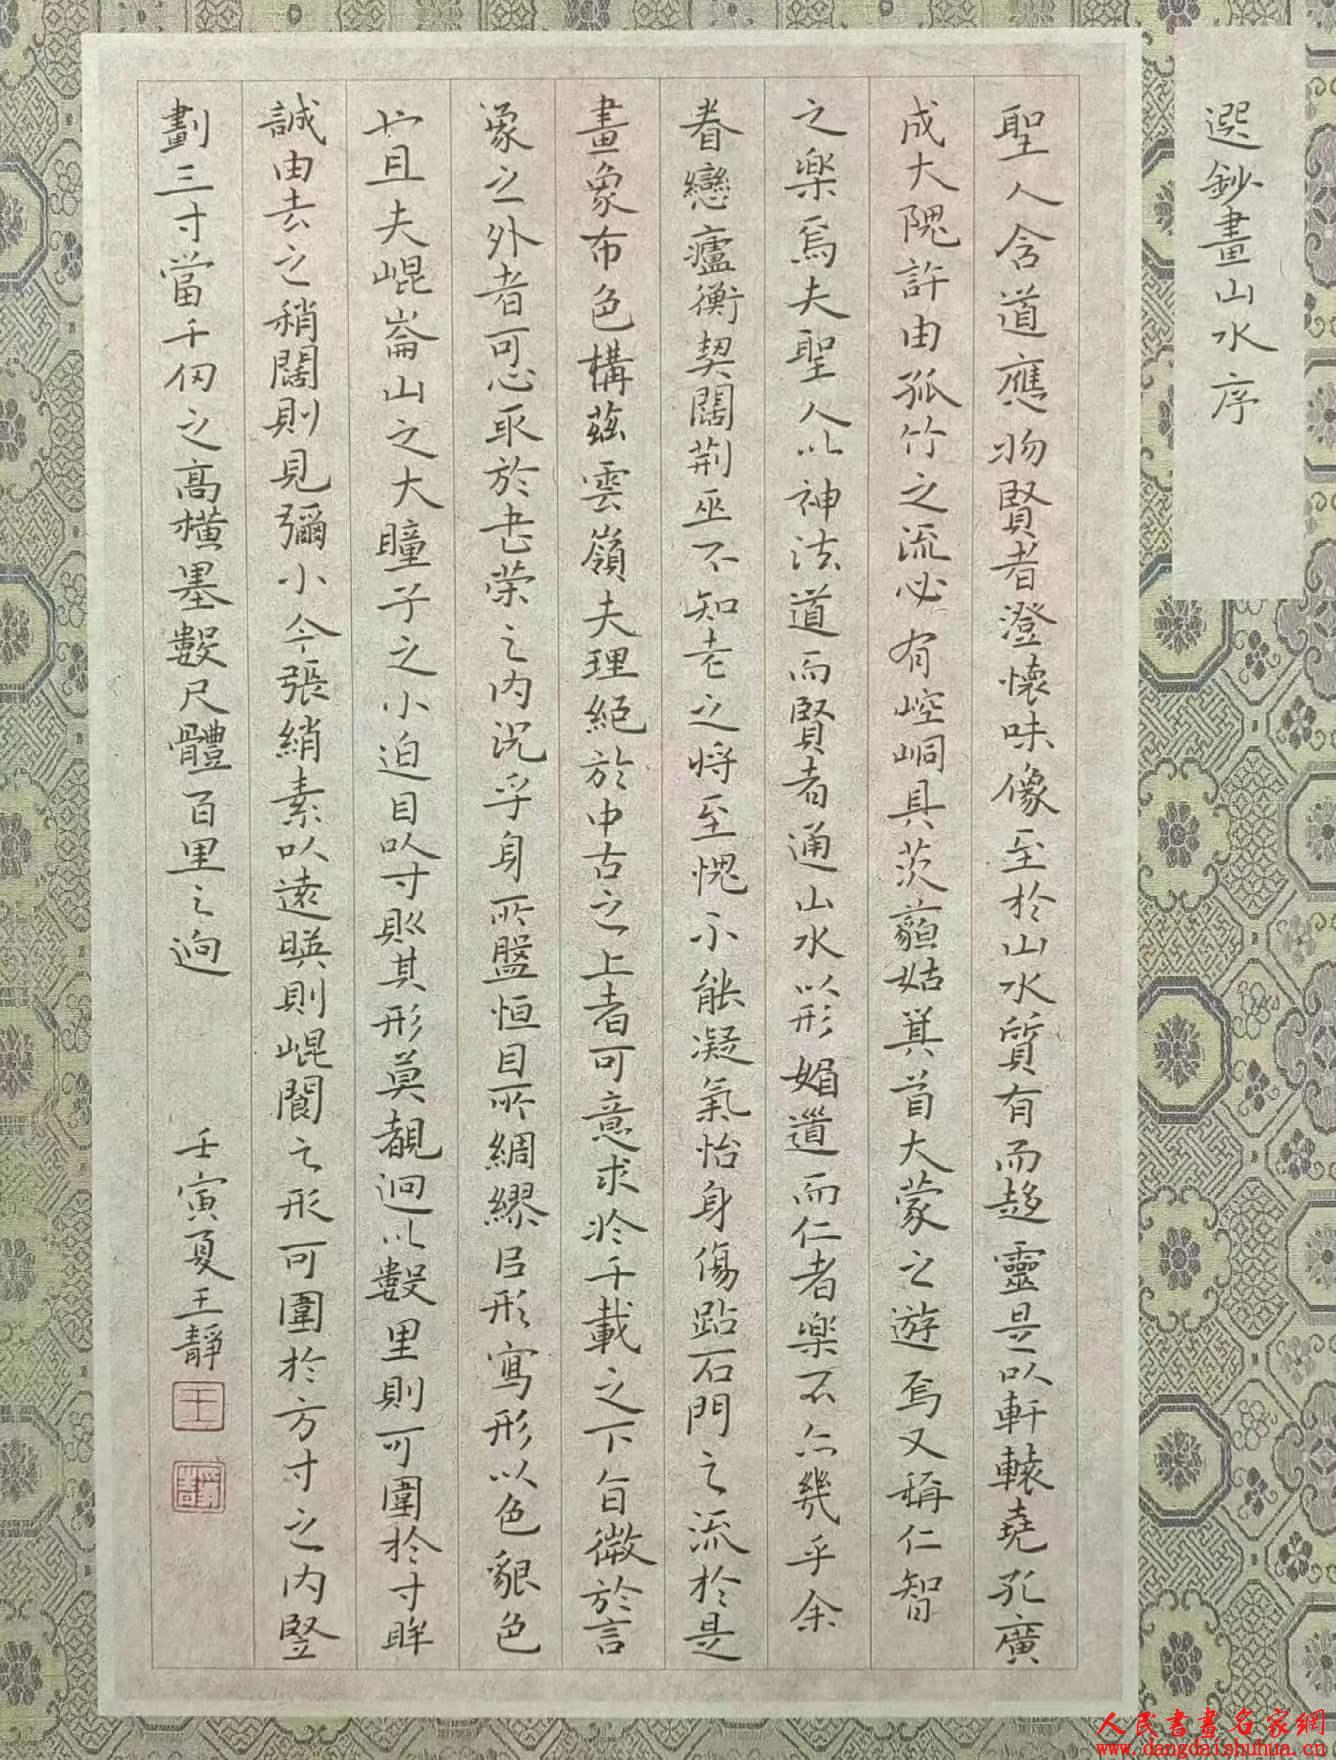 選鈔畫山水序
聖人含道應物賢者澄懷味像至於山水質有而趍靈是以軒轅堯孔廣
成大隗許由孤竹之流必有崆峒具茨藐姑箕首大蒙之遊焉又稱仁智
之樂焉夫聖人以神法道而賢者通山水以形媚道而仁者樂不亦幾乎余
眷戀廬衡契闊荊巫不知老之將至愧不能凝氣怡身傷跕石門之流於是
畫象布色構茲雲嶺夫理絕於中古之上者可意求於千載之下旨微於言
象之外者可心取於書荣之內況乎身所盤恒目所綢繆以形寫形以色貌色
也且夫崐崙山之大瞳子之小迫目以寸則其形莫覩迥以數里則可圍於寸眸
誠由去之稍闊則見彌小今張綃素以遠暎則崐閬之形可圍於方寸之內竪
劃三寸當千仞之高橫墨數尺體百里之逈
壬寅夏王靜
王
靜
人民書畫名家網
www.dangdaishuhua.cn